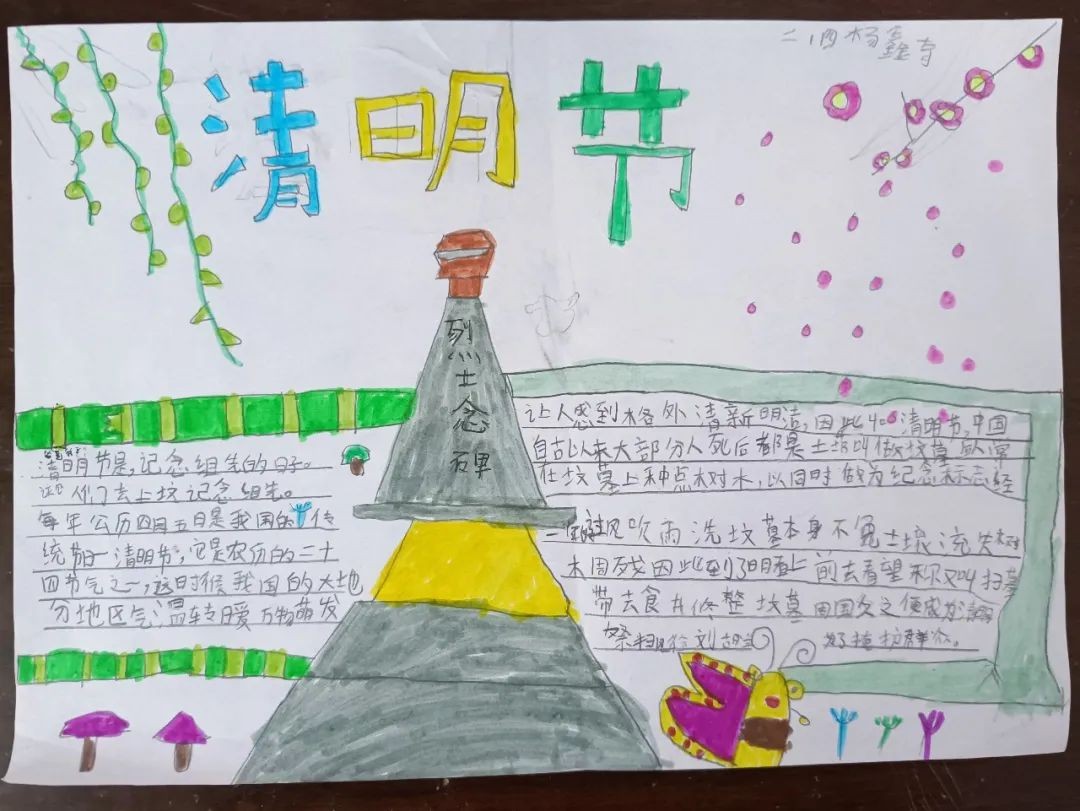 二、四杨鑫
清明节
烈士念碑
清明节是,记念组先的日子。
人们去上坟记念组先。
每年公历四月五日是我国的传
统节一清明节,它是农历的二十
四节气之一,这时候我国的大地
分地区气温转暖万物萌发
让人感到格外清新明洁,因此叫清明节,中国
自古以来大部分人死后都是土葬叫做坟墓
在坟墓上种点树木,以同时做为纪念标志经
风吹雨洗坟墓本身不免土壤流失树
木周残因此到了明看上前去看望称又叫扫墓
带去食并修整坟墓用国文之便成为清明
祭扫